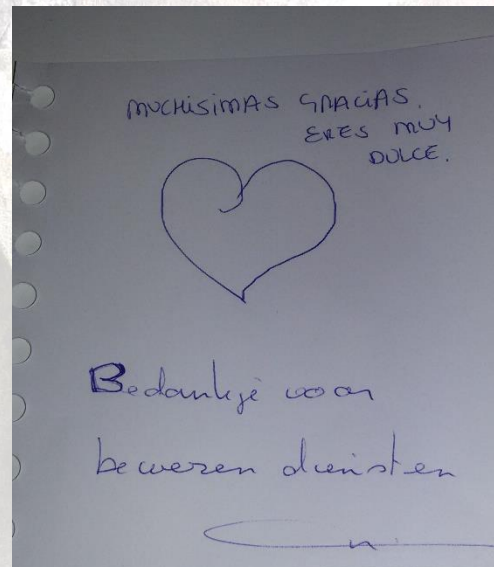 MUCHÍSIMAS GRACIAS.
ERES MUY
DULCE.
Bedankje voor
bewezen diensten